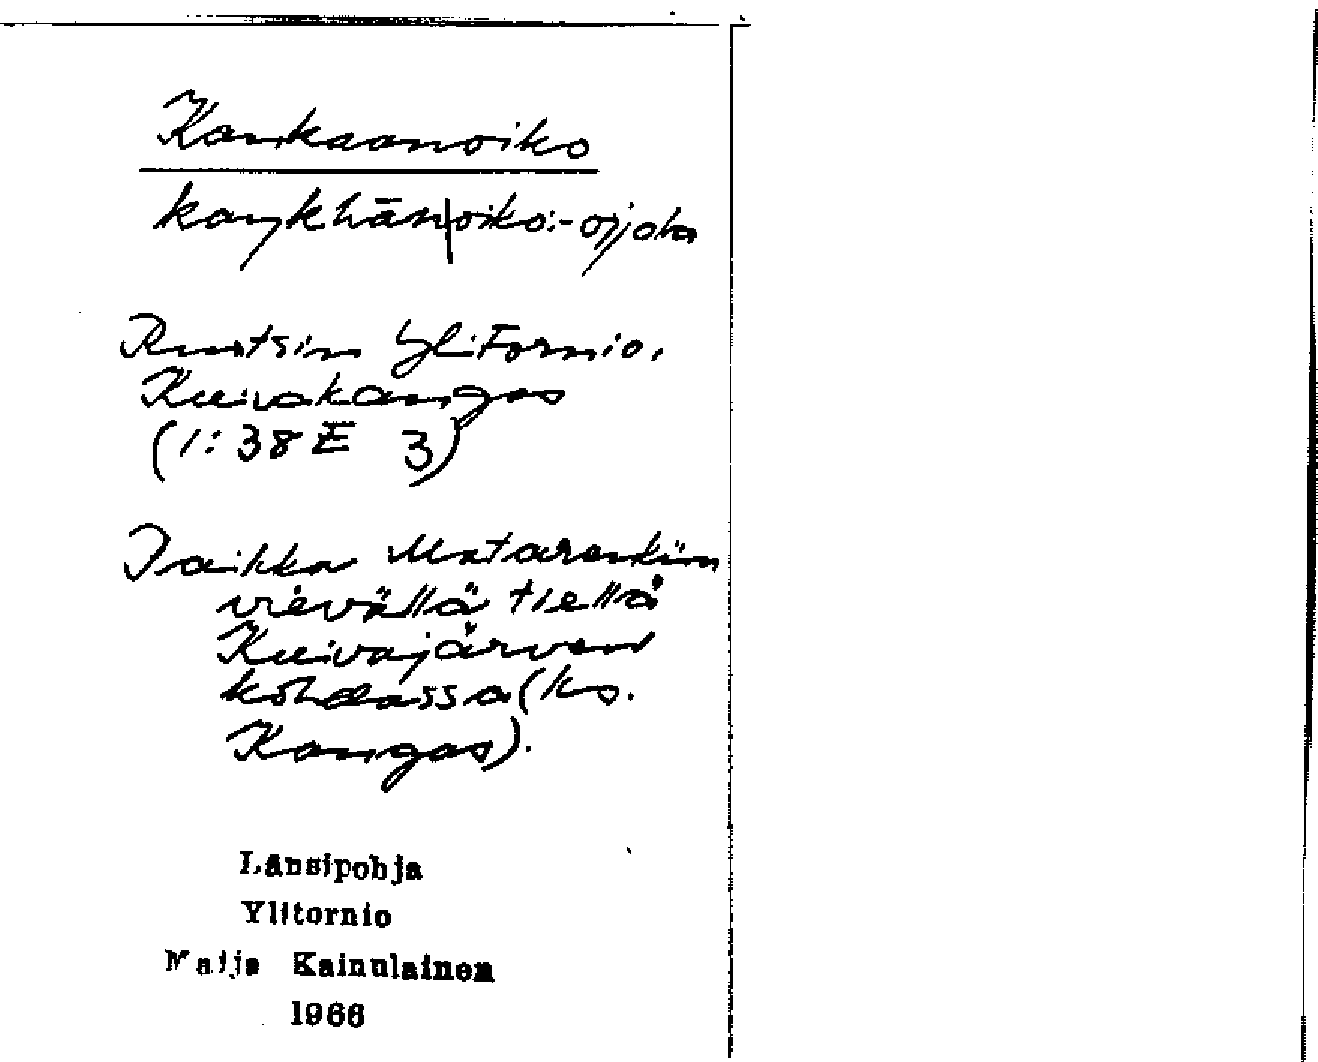 Kankaanoiko
kaŋkhān|oiko:-ojjola
Ruotsin Ylitornio,
Kuivakangas
(1:38 E 3)
Paikka Matarenkiin
vievällä tiellä
Kuivajärven
kohdassa (ks.
Kangas).
Länsipohja
Ylitornio
Maija Kainulainen
1966